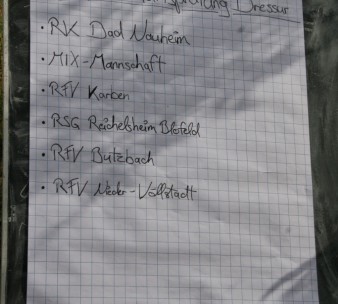 Dressur
• RK Bad Nauheim
• MIX-Mannschaft
• RFV Karben
• RSG Reichelsheim Bleifeld
• RFV Butzbach
• RFV Nieder-Wöllstadt